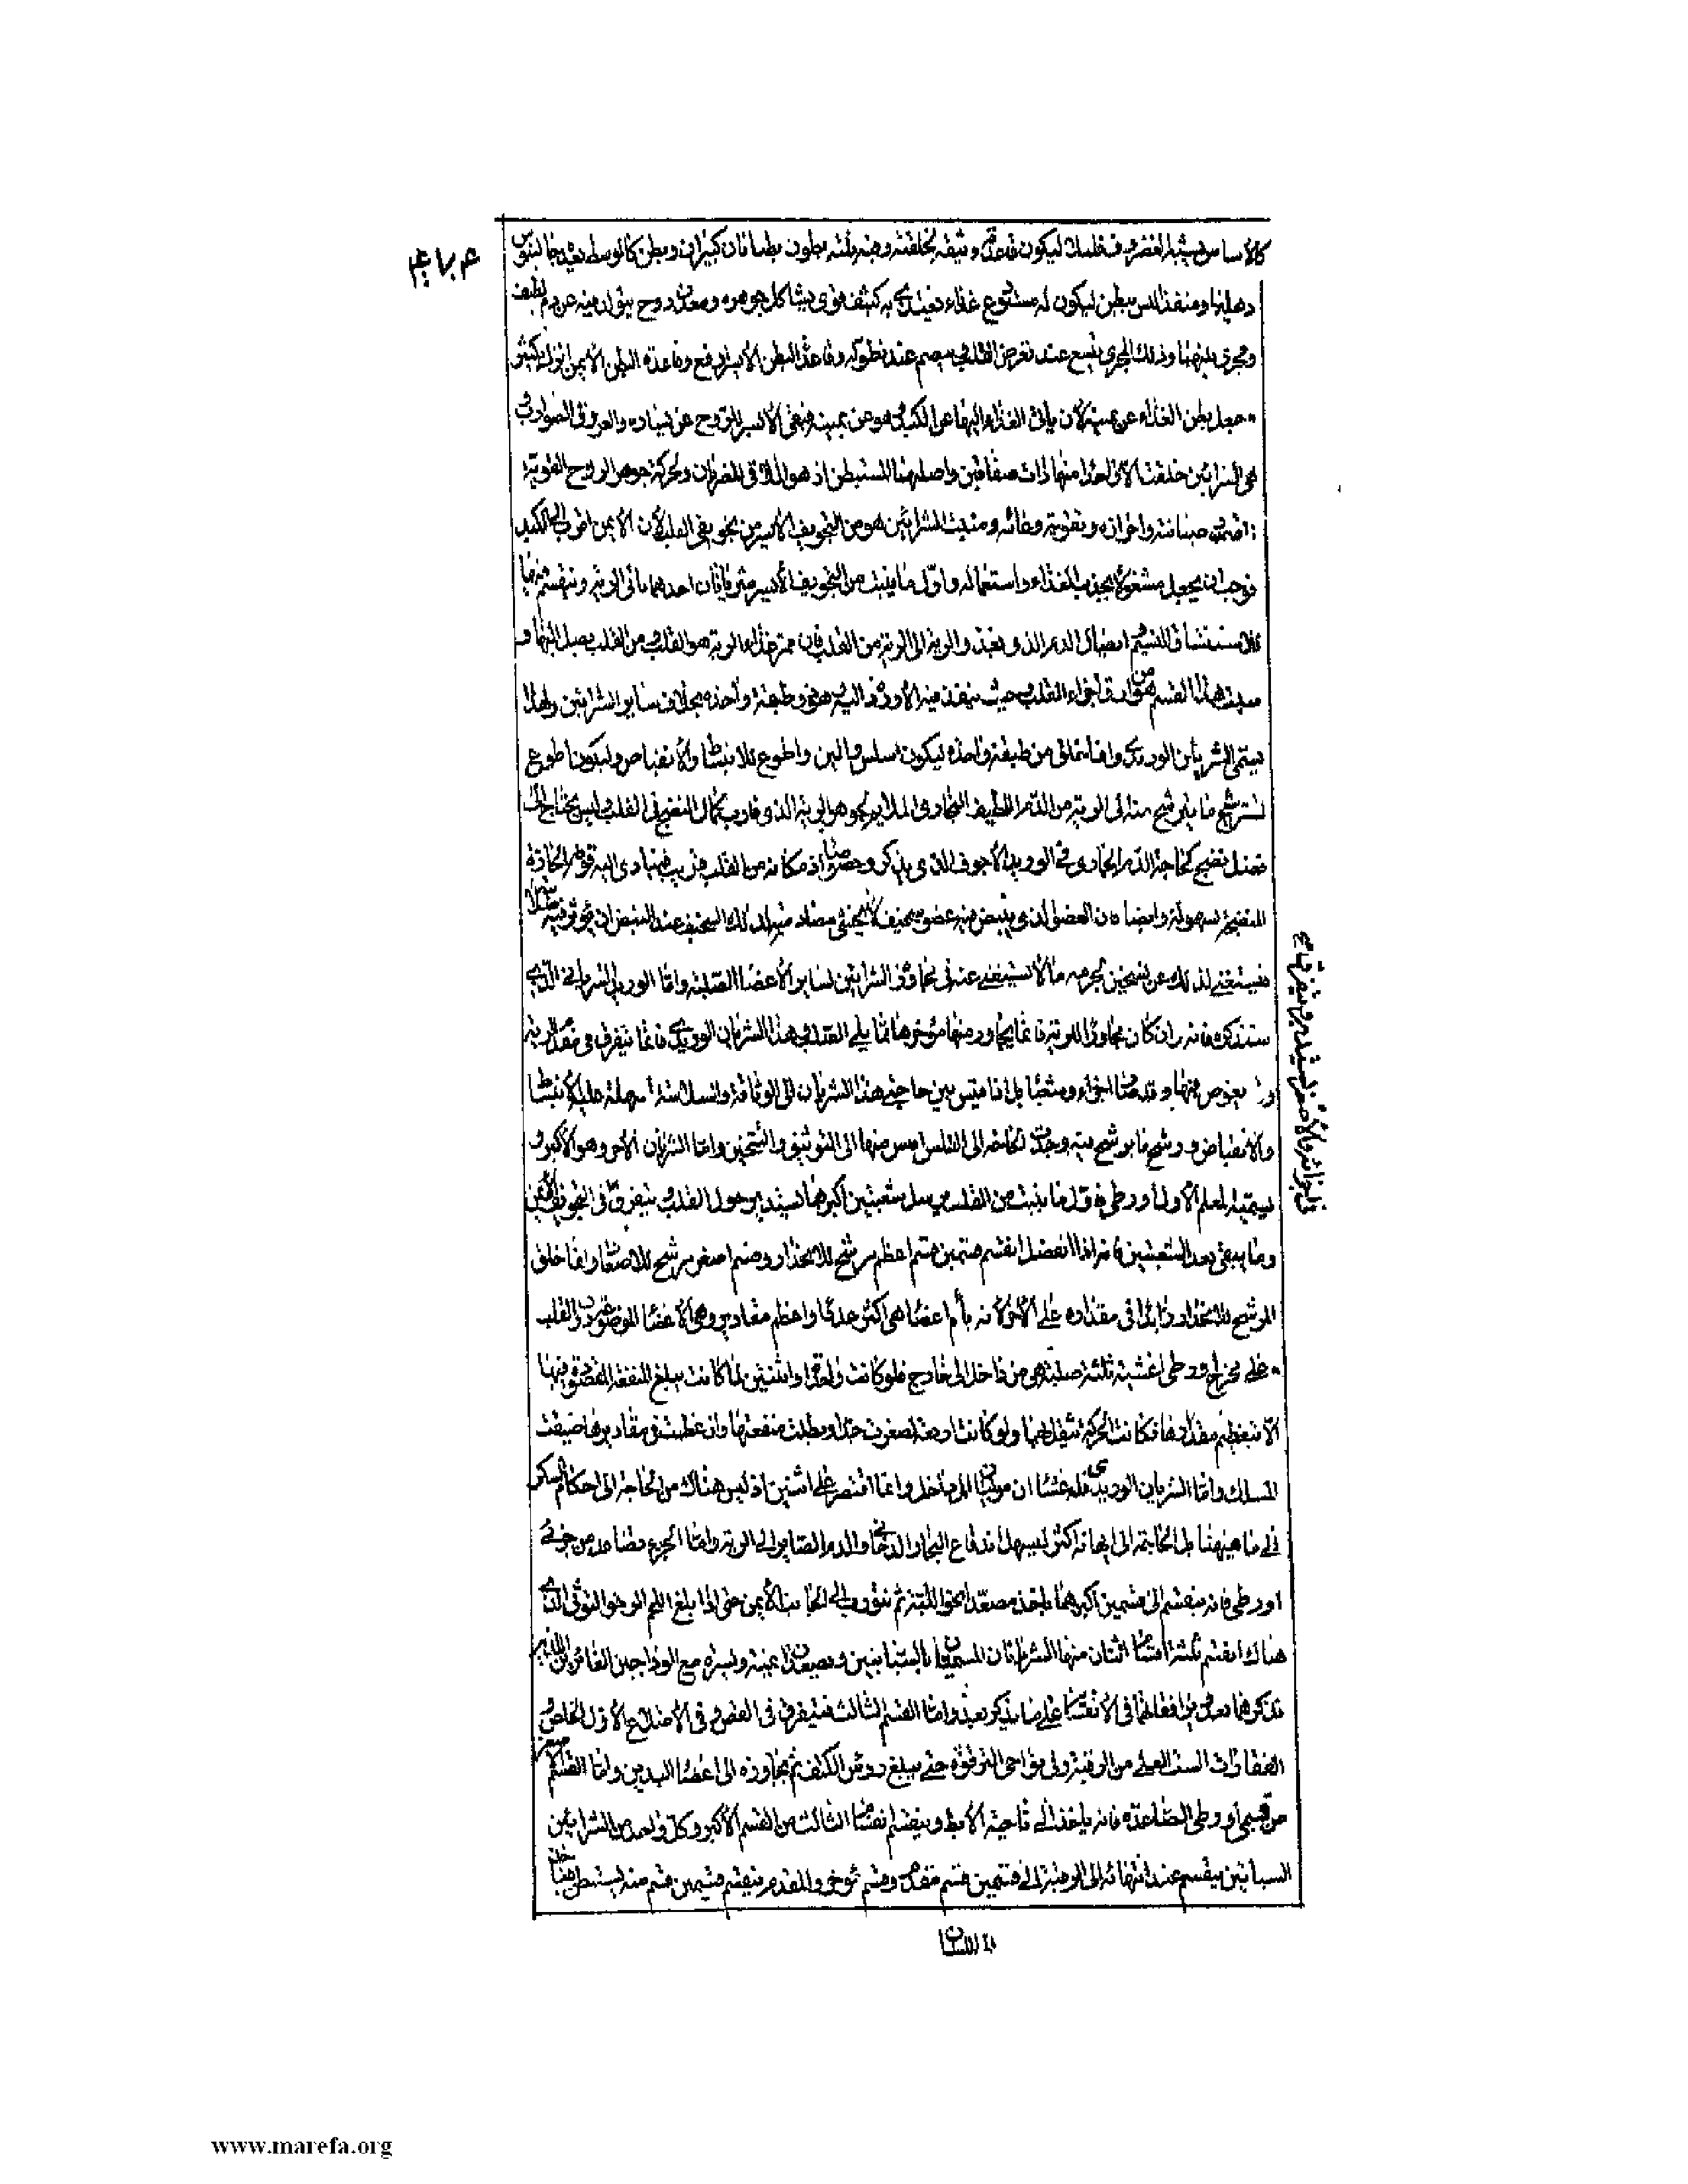 كالأساس يشبه الغضروف قليلا ليكون قاعدة وثيقة لخلقته وفيه ثلثة بطون بطنان كبيران وبطن كالوسط يعيده جالينوس
دهليزا ومنفذا ليس ببطن ليكون له مستودع غذاء يغتذي به كثيف قوي يشاكل جوهره ومعدن روح يتولد فيه عن دم لطيف
ومجرى بينهما وذلك المجرى يتسع عند تعرض القلب وينضم عند تطوله وقاعدة البطن الأيسر ارفع وقاعدة البطن الأيمن انزل بكثير
والعروق الضوارب
هي الشرائين خلقت الا واحدا منها ذات صفاقين واصلبهما المستبطن اذ هو الملاقي للضربان ولحركة جوهر الروح القوية
صيانته واحرازه وتقوية وعائه ومنبت الشرائين هو من التجويف الأيسر من تجويفي القلب لأن الأيمن اقرب الى الكبد
فوجب ان يجعل مشغولا بجذب الغذاء واستعماله واول ما ينبت من التجويف الأيسر شريانان احدهما يأتي الرية وينقسم فيها
لاستنشاق النسيم وايصال الدم الذي يغذو الرية الى الرية من القلب فان ممر غذاء الرية هو القلب ومن القلب يصل اليها و
منبت هذا القسم هو من ارق اجزاء القلب وحيث ينفذ فيه الأوردة اليه وهي ذو طبقة واحدة بخلاف ساير الشرائين ولهذا
يسمى الشريان الوريدي وانما خلق من طبقة واحدة ليكون اسلس والين واطوع للانبساط والانقباض وليكون اطوع
لترشح ما يترشح منه الى الرية من الدم اللطيف البخاري الملايم لجوهر الرية الذي قارب كمال النضج في القلب وليس يحتاج الى
فضل نضج كحاجة الدم الجاري في الوريد الأجوف الذي يذكر وخصوصا اذ مكانه من القلب قريب فيتادى اليه قوته الحارة
المنضجة بسهولة وايضا فان العضو الذي ينبض فيه عضو سخيف لا يخشى مصادمته لذلك السخيف عند النبض ان تؤثر فيه صلابته
فيستغنى لذلك عن تثخين لجرمه ما لا يستغنى عنه في مجاورة الشرائين لساير الأعضاء الصلبة واما الوريد الشرياني الذي
سنذكره فانه وان كان مجاورا للرية فانما يجاور منها مؤخرها مما يلي الصلب وهذا الشريان الوريدي فانما يتفرق في مقدم الرية
ويغوص فيها وقد صار اجزاء وشعبا بل اذا قيس بين حاجتي هذا الشريان الى الوثاقة والى السلاسة المسهلة عليه الانبساط
والانقباض ورشح ما يرشح منه وجدت الحاجة الى التسليس امس منها الى التوثيق والتثخين واما الشريان الآخر وهو الأكبر و
يسميه المعلم الأول اورطي فاول ما ينبت من القلب يرسل شعبتين اكبرهما يستدير حول القلب ويتفرق في اجزائه والأصغر يستدير ويتفرق في التجويف الأيمن
وما يبقى بعد الشعبتين فانه اذا انفصل انقسم قسمين قسم اعظم مرشح للانحدار وقسم اصغر مرشح للاصعاد وانما خلق
المرشح للانحدار زايدا في مقداره على الآخر لأنه يأم اعضاء هي اكثر عددا واعظم مقادير وهي الأعضاء الموضوعة دون القلب
وعلى مخرج اورطي اغشية ثلثة صلبة هي من داخل الى خارج فلو كانت واحدا او اثنتين لما كانت تبلغ المنفعة المقصودة فيها
الا بتعظيم مقدارها فكانت الحركة تثقل بها ولو كانت اربعة لصغرت جدا وبطلت منفعتها وان عظمت في مقاديرها ضيقت
المسلك واما الشريان الوريدي فله غشاءان موليان الى داخل وانما اقتصر على اثنين اذ ليس هناك من الحاجة الى احكام السكر
في ما ههنا بل الحاجة الى السلاسة اكثر ليسهل اندفاع البخار الدخاني والدم الصاير الى الرية واما الجزء الصاعد من جزئي
اورطي فانه ينقسم الى قسمين اكبرهما يأخذ مصعدا نحو اللبة ثم يتورب الى الجانب الأيمن حتى اذا بلغ اللحم الرخو التوثي الذي
هناك انقسم ثلثة اقسام اثنان منها الشريانان المسميان بالسباتيين ويصعدان يمنة ويسرة مع الوداجين الغائرين اللذين
نذكرهما بعد ويرافقانهما في الانقسام على ما يذكر بعد واما القسم الثالث فيتفرق في القص وفي الأضلاع الأول الخلص و
الفقارات الست العلى من الرقبة وفي نواحي الترقوة حتى يبلغ رؤس الكتف ثم يجاوزه الى اعضاء اليدين واما القسم الأصغر
من قسمي اورطي الصاعدة فانه يأخذ الى ناحية الأبط وينقسم انقسام الثالث من القسم الأكبر وكل واحد من الشرائين
السباتيين ينقسم عند انتهائه الى الرقبة الى قسمين قسم مقدم وقسم مؤخر والمقدم ينقسم قسمين قسم منه يستبطن فياتي
اللسان
www.marefa.org